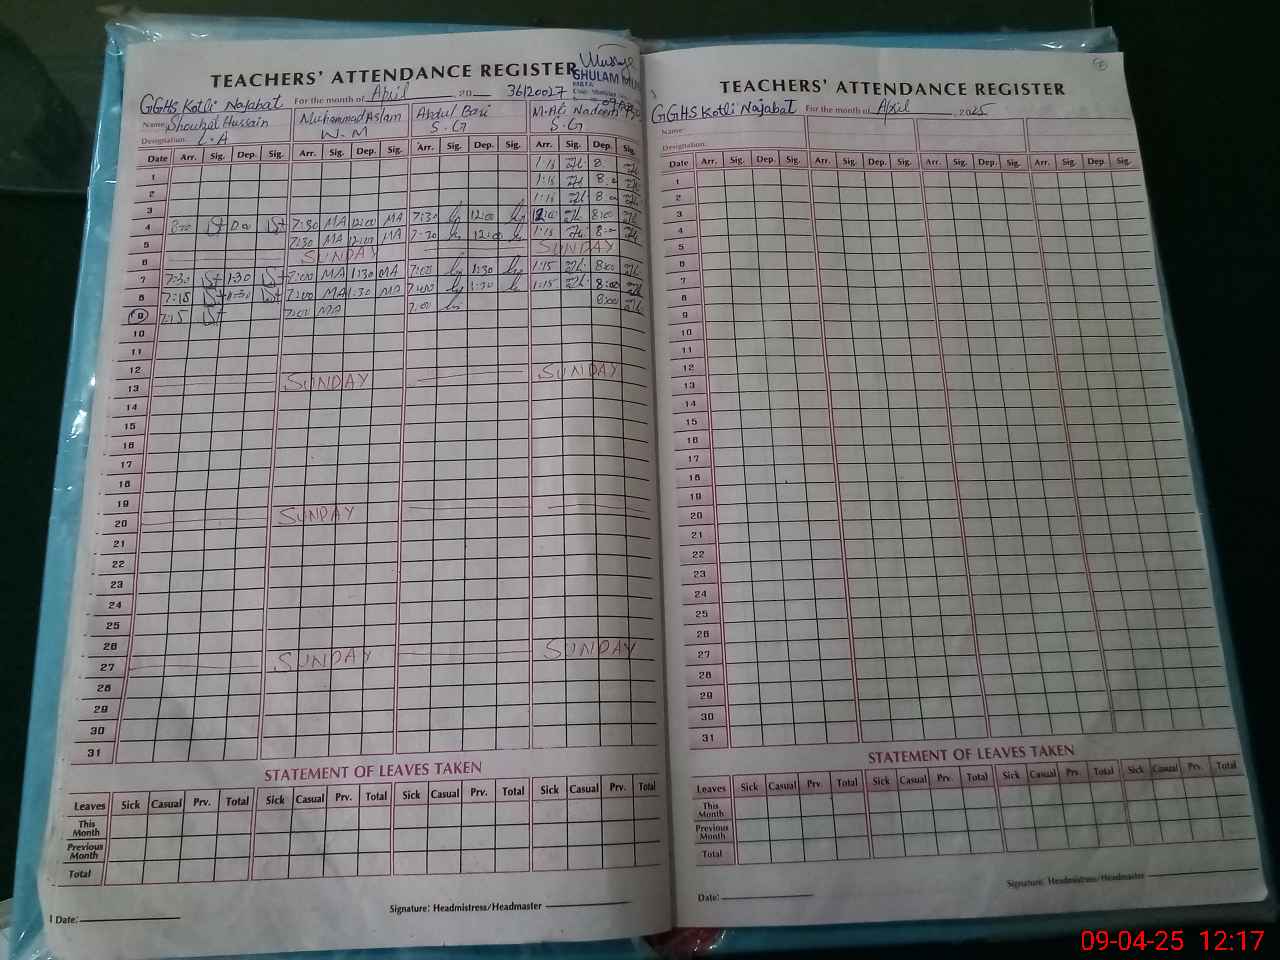 TEACHERS' ATTENDANCE REGISTER
SHULAM
GGHS Kotli Najabat For the month of April 20 36120027
Name Shoukat Hussain Muhammad Aslam Abdul Bari M. Ali Nadeem
Designation L.A W.M S.G S.G
Date Arr. Sig. Dep. Sig. Arr. Sig. Dep. Sig. Arr. Sig. Dep. Sig. Arr. Sig. Dep. Sig.
1 1:15 8
2 1:15 8:00
3 1:15 8:00
4 8:00 7:30 MA 12:00 MA 7:30 12:00 8:00
5 7:30 MA 12:00 MA 7:30 12:00 1:15 8:00
6 SUNDAY SUNDAY
7 7:30 1:30 7:00 MA 1:30 MA 7:00 1:30 1:15 8:00
8 7:15 1:30 7:00 MA 1:30 MA 7:00 1:30 1:15 8:00
9 7:15 7:00 MA 7:00 8:00
10
11
12
13 SUNDAY SUNDAY
14
15
16
17
18
19
20 SUNDAY
21
22
23
24
25
26
27 SUNDAY SUNDAY
28
29
30
31
STATEMENT OF LEAVES TAKEN
Leaves Sick Casual Prv. Total Sick Casual Prv. Total Sick Casual Prv. Total Sick Casual Prv. Total
This Month
Previous Month
Total
Date:
Signature: Headmistress/Headmaster
TEACHERS' ATTENDANCE REGISTER
GGHS Kotli Najabat For the month of April 2025
Name
Designation
Date Arr. Sig. Dep. Sig. Arr. Sig. Dep. Sig. Arr. Sig. Dep. Sig. Arr. Sig. Dep. Sig.
1
2
3
4
5
6
7
8
9
10
11
12
13
14
15
16
17
18
19
20
21
22
23
24
25
26
27
28
29
30
31
STATEMENT OF LEAVES TAKEN
Leaves Sick Casual Prv. Total Sick Casual Prv. Total Sick Casual Prv. Total Sick Casual Prv. Total
This Month
Previous Month
Total
Date:
Signature: Headmistress/Headmaster
09-04-25 12:17